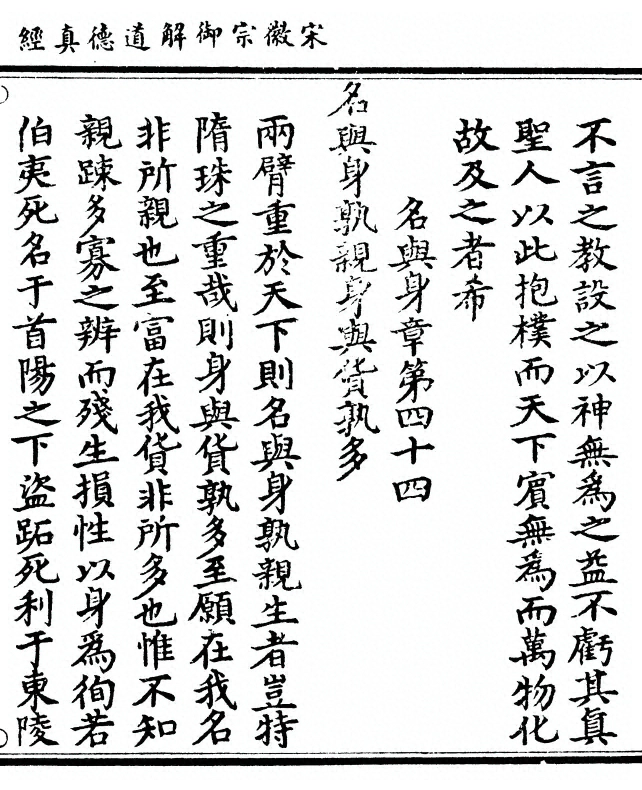 宋徽宗御解道德真經
不言之教設之以神無為之益不虧其真
聖人以此抱樸而天下賓無為而萬物化
故及之者希
名與身章第四十四
名與身孰親身與貨孰多
兩臂重於天下則名與身孰親生者豈特
隋珠之重哉則身與貨孰多至願在我名
非所親也至富在我貨非所多也惟不知
親踈多寡之辨而殘生損性以身為徇若
伯夷死名于首陽之下盜跖死利于東陵